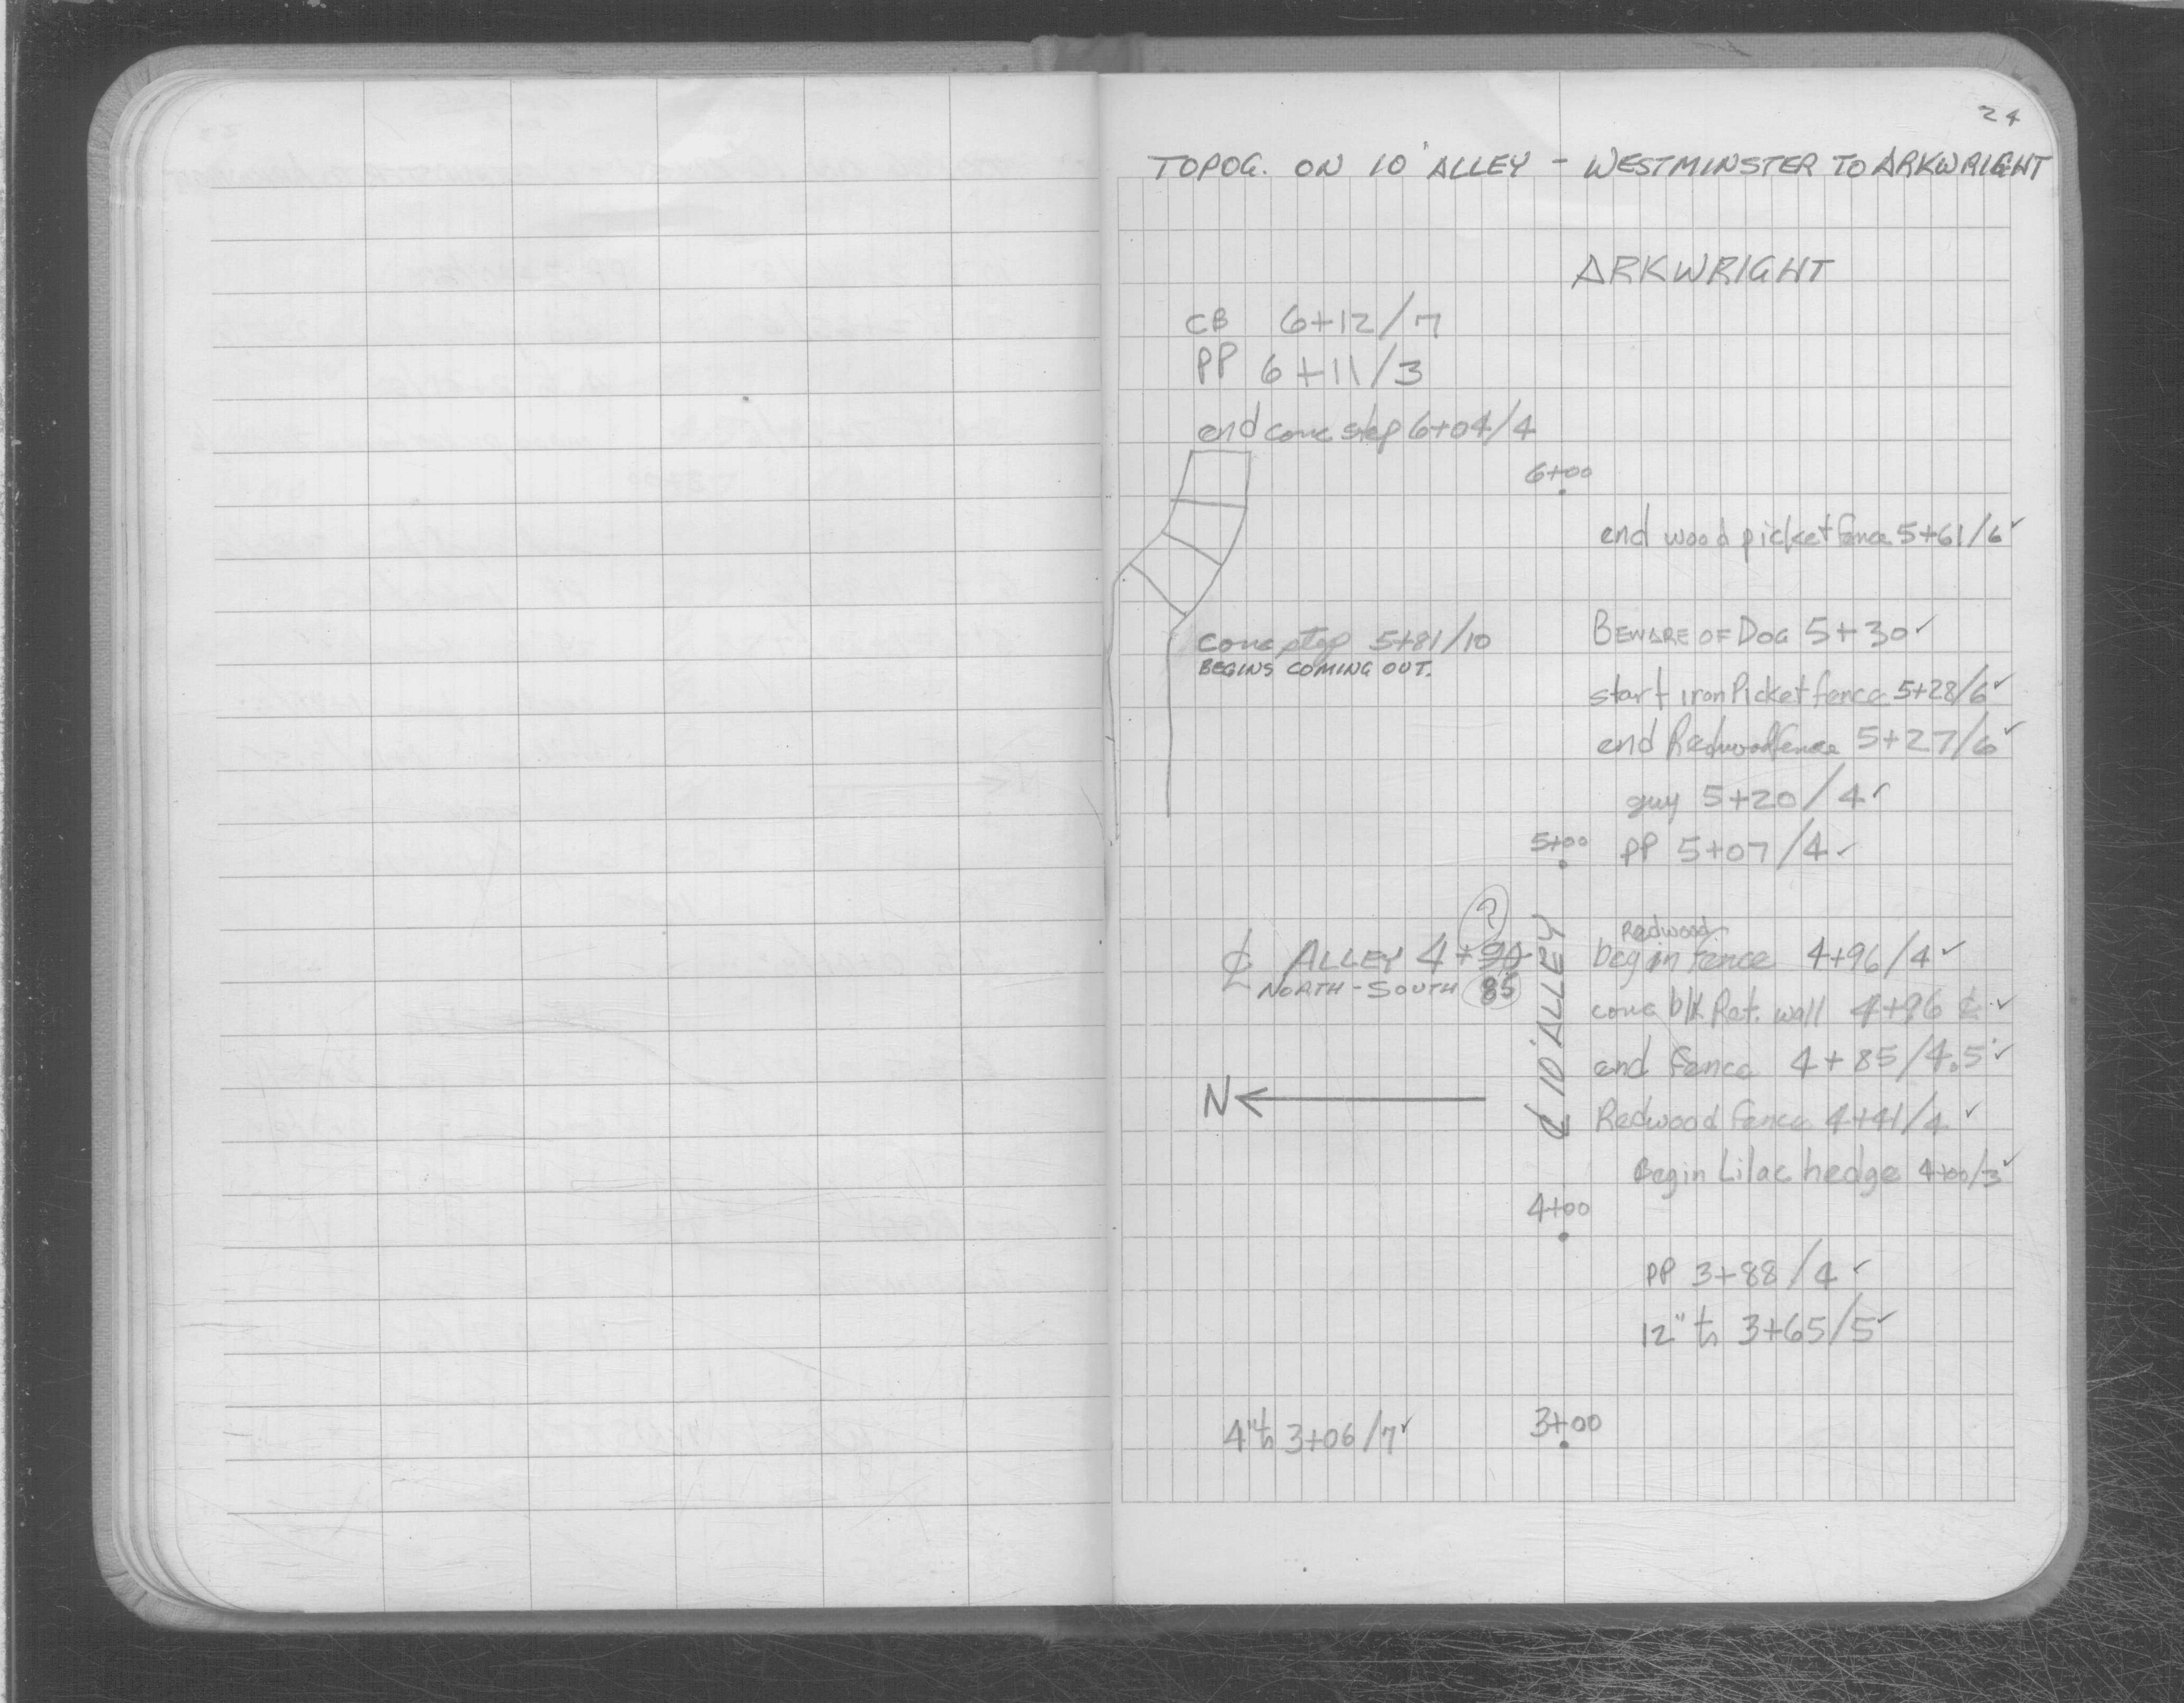 24
TOPOG. ON 10' ALLEY - WESTMINSTER TO ARKWRIGHT
ARKWRIGHT
CB 6+12/7
PP 6+11/3
end conc step 6+04/4
6+00
end wood picket fence 5+61/6 ✓
BEWARE OF DOG 5+30 ✓
conc step 5+81/10
BEGINS COMING OUT.
start iron Picket fence 5+28/6 ✓
end Redwood fence 5+27/6 ✓
guy 5+20/4 ✓
5+00
PP 5+07/4 ✓
?
Redwood
℄ ALLEY 4+90
NORTH-SOUTH 85
begin fence 4+96/4 ✓
conc blk Ret. wall 4+96 ✓
end fence 4+85/4.5' ✓
N
℄ 10' ALLEY
Redwood fence 4+41/4 ✓
Begin Lilac hedge 4+00/3 ✓
4+00
PP 3+88/4 ✓
12" tr 3+65/5 ✓
3+00
4" tr 3+06/7 ✓